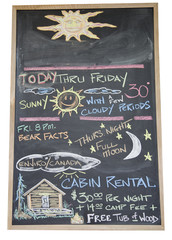 TODAY THRU FRIDAY
30°
SUNNY WITH FEW
CLOUDY PERIODS
FRI. 8 P.M.
BEAR FACTS
THURS NIGHT
FULL
MOON
ENVIRO/CANADA
CABIN RENTAL
$30.00 PER NIGHT
+ 14.00 CAMP FEE +
FREE TUB & WOOD